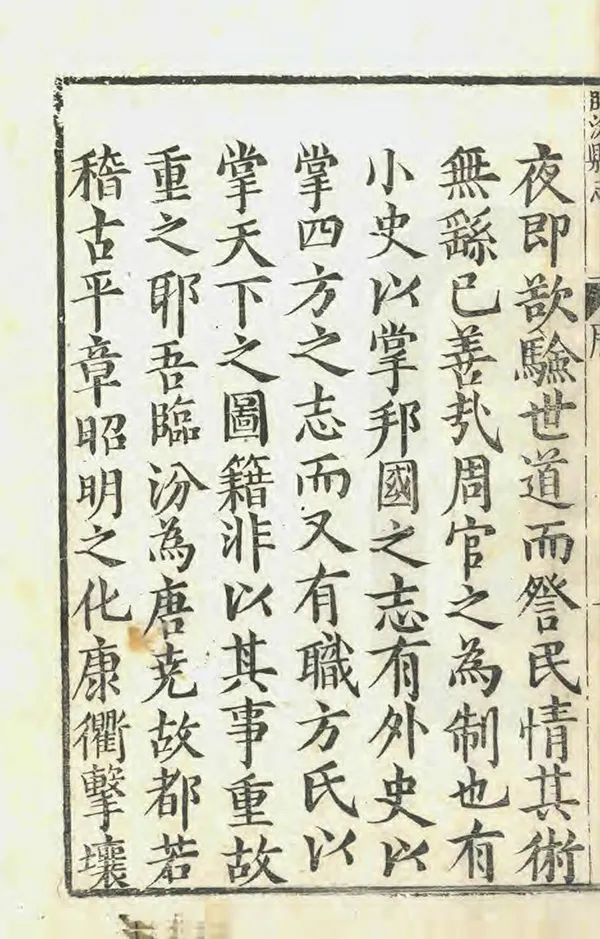 臨汾縣志
序
夜即欲驗世道而詧民情其術
無繇已善哉周官之為制也有
小史以掌邦國之志有外史以
掌四方之志而又有職方氏以
掌天下之圖籍非以其事重故
重之耶吾臨汾為唐堯故都若
稽古平章昭明之化康衢擊壤